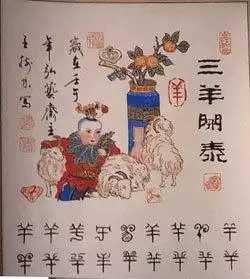 三羊開泰
羊
歲在壬午
年弘藝齋主
王 寫
羊 羊 羊 羊 羊 羊 羊 羊 羊
羊 羊 羊 羊 羊 羊 羊 羊 羊